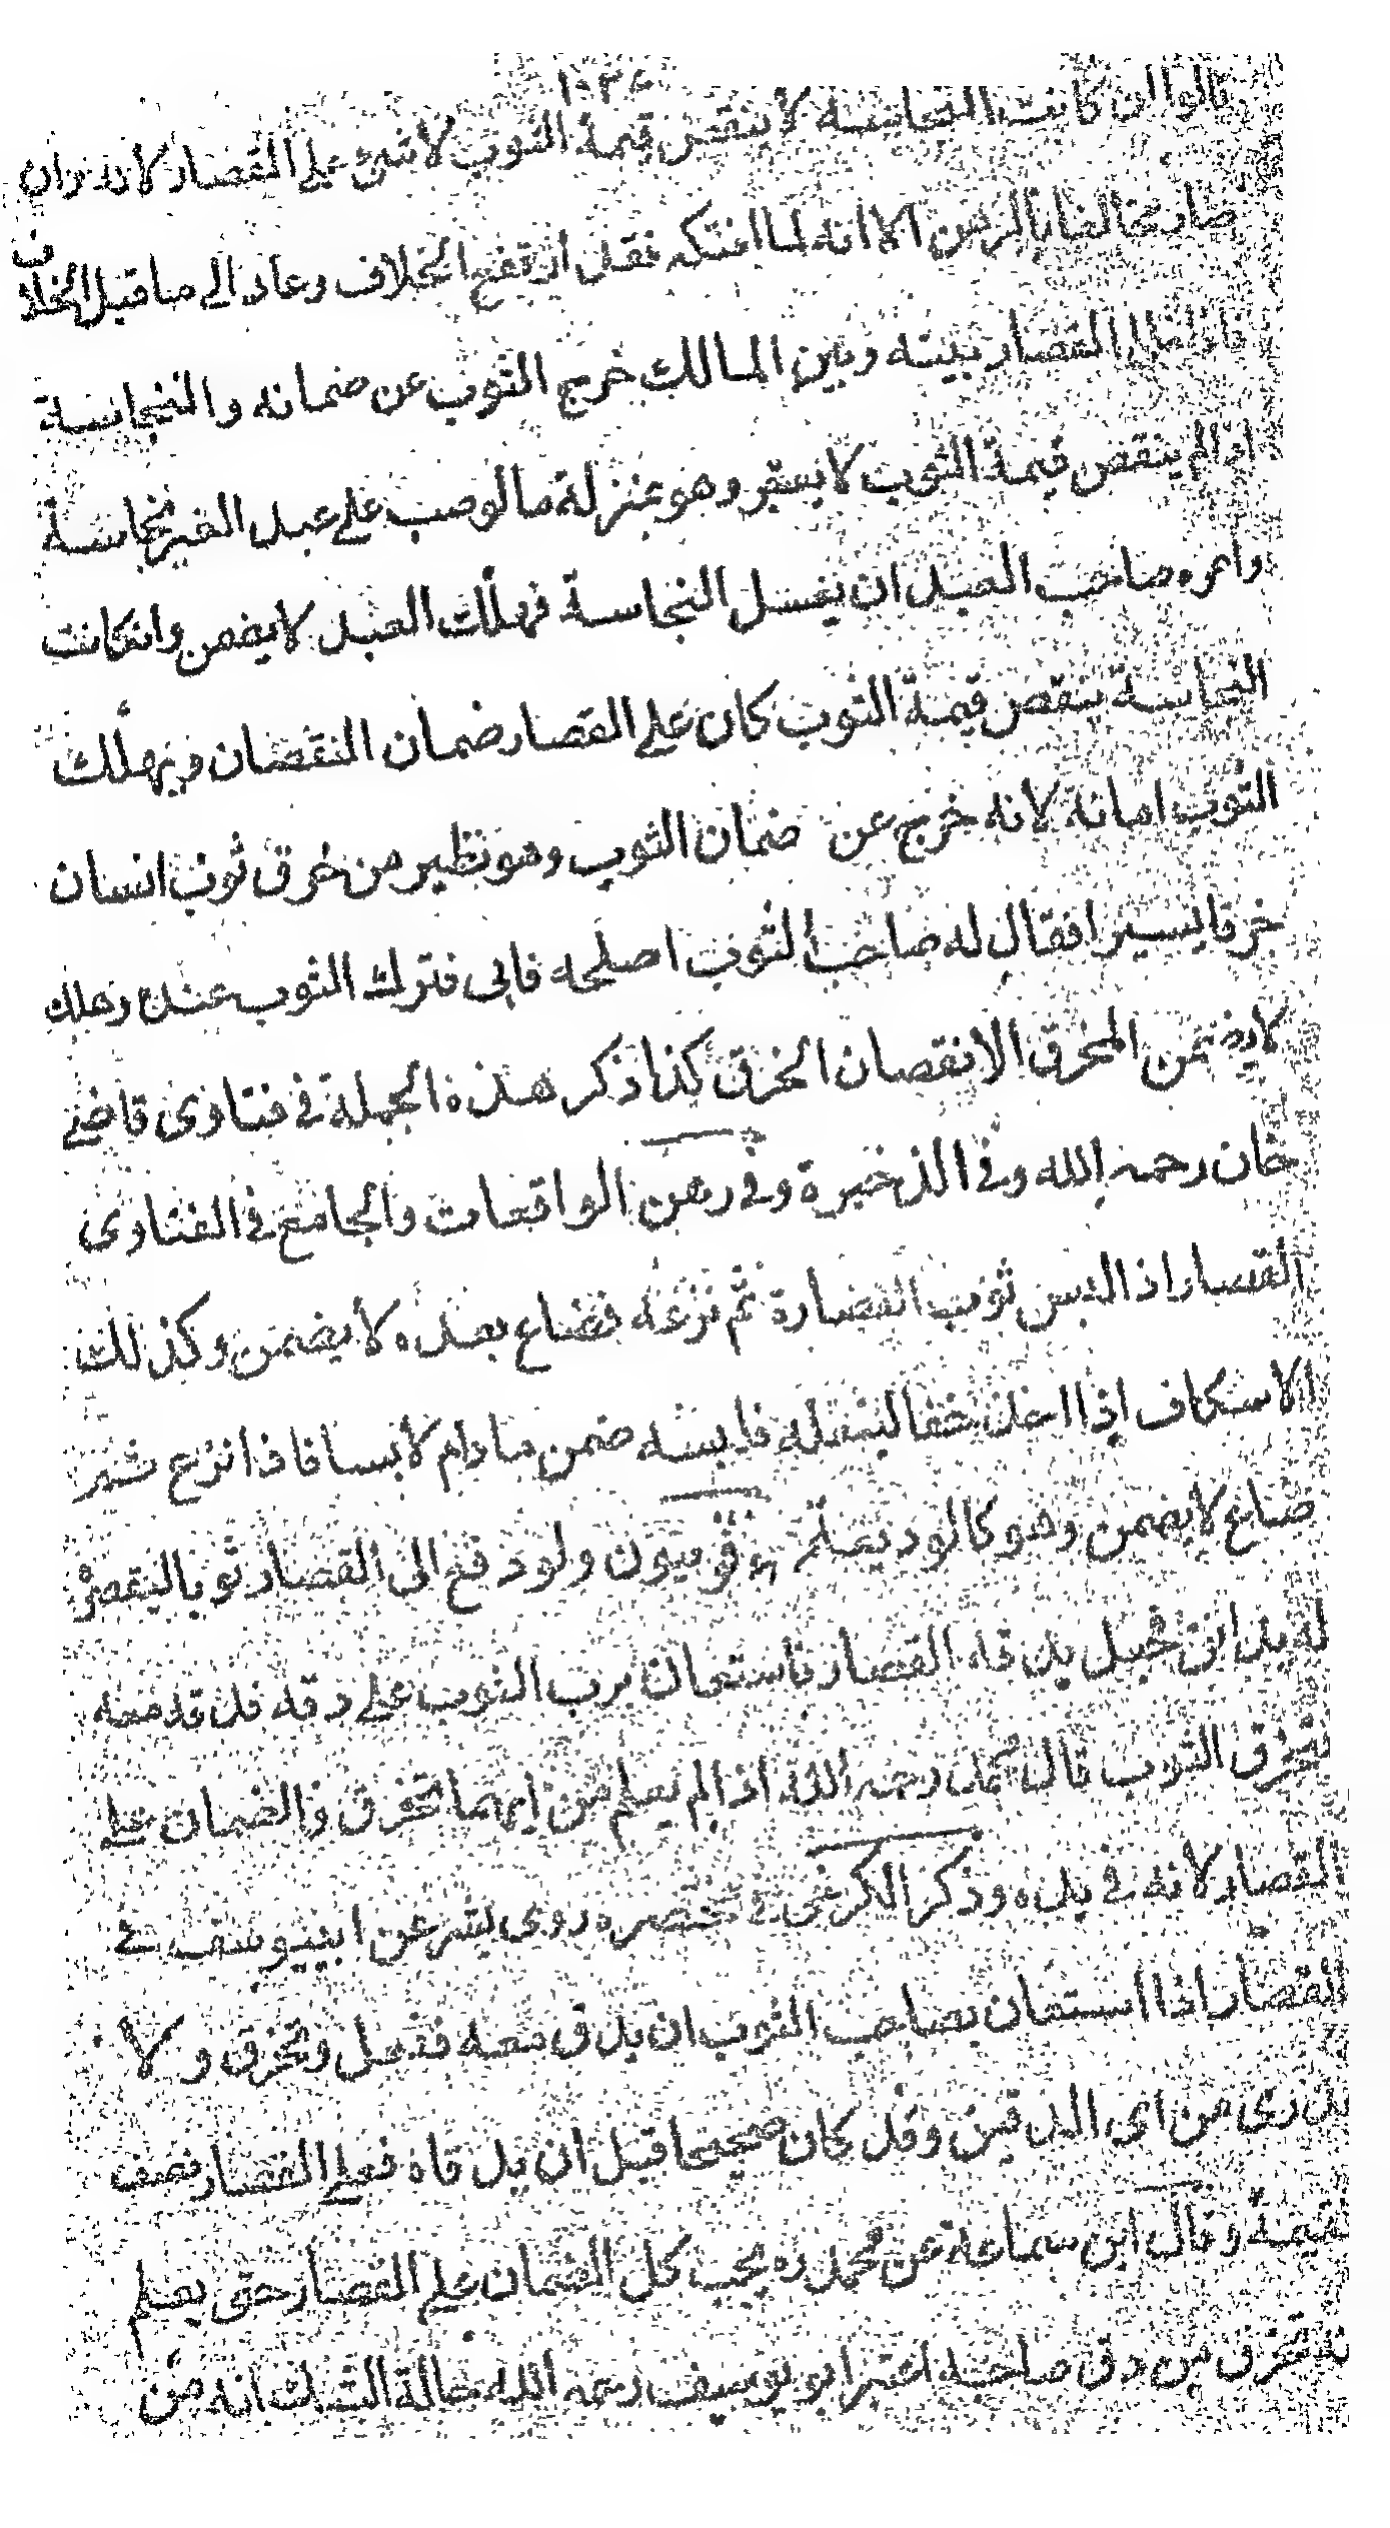 قالوا ان كانت النجاسة لا تنقص قيمة الثوب لا شئ على القصار لانه وان
صار مخالفا بالرهن الا انه لما افتكه فقد ارتفع الخلاف وعاد الى ما قبل الخلاف
فاذا خلى القصار بينه وبين المالك خرج الثوب عن ضمانه والنجاسة
اذا لم ينقص قيمة الثوب لا يعتبر وهو بمنزلة ما لو صب على عبد الغير نجاسة
وامره صاحب العبد ان يغسل النجاسة فهلك العبد لا يضمن وانكانت
النجاسة ينقص قيمة الثوب كان على القصار ضمان النقصان ويهلك
الثوب امانة لانه خرج عن ضمان الثوب وهو نظير من خرق ثوب انسان
خرقا يسيرا فقال له صاحب الثوب اصلحه فابى فترك الثوب عنده وهلك
لا يضمن المخرق الا نقصان الخرق كذا ذكر هذه الجملة في فتاوى قاضي
خان رحمه الله وفي الذخيرة وفي رهن الواقعات والجامع في الفتاوى
القصار اذا لبس ثوب القصارة ثم نزعه فضاع بعده لا يضمن وكذلك
الاسكاف اذا اخذ خفا لينعله فلبسه ضمن ما دام لابسا فاذا نزع ثم
ضاع لا يضمن وهو كالوديعة ولو دفع الى القصار ثوبا ليقصر
له بدانق فجعل يدقه القصار فاستعان برب الثوب على دقه فدقه معه
فتخرق الثوب قال محمد رحمه الله اذا لم يعلم من ايهما تخرق فالضمان على
القصار لانه في يده وذكر الكرخى في مختصره روى بشر عن ابييوسف في
القصار اذا استعان بصاحب الثوب ان يدق معه ففعل وتخرق ولا
يدرى من اى الدقين وقد كان صحيحا قبل ان يدقاه فعلى القصار نصف
قيمة وقال ابن سماعة عن محمد ره يجب كل الضمان على القصار حتى يعلم
انه تخرق من دق صاحبه اعتبر ابو يوسف رحمه الله حالة الشك انه من